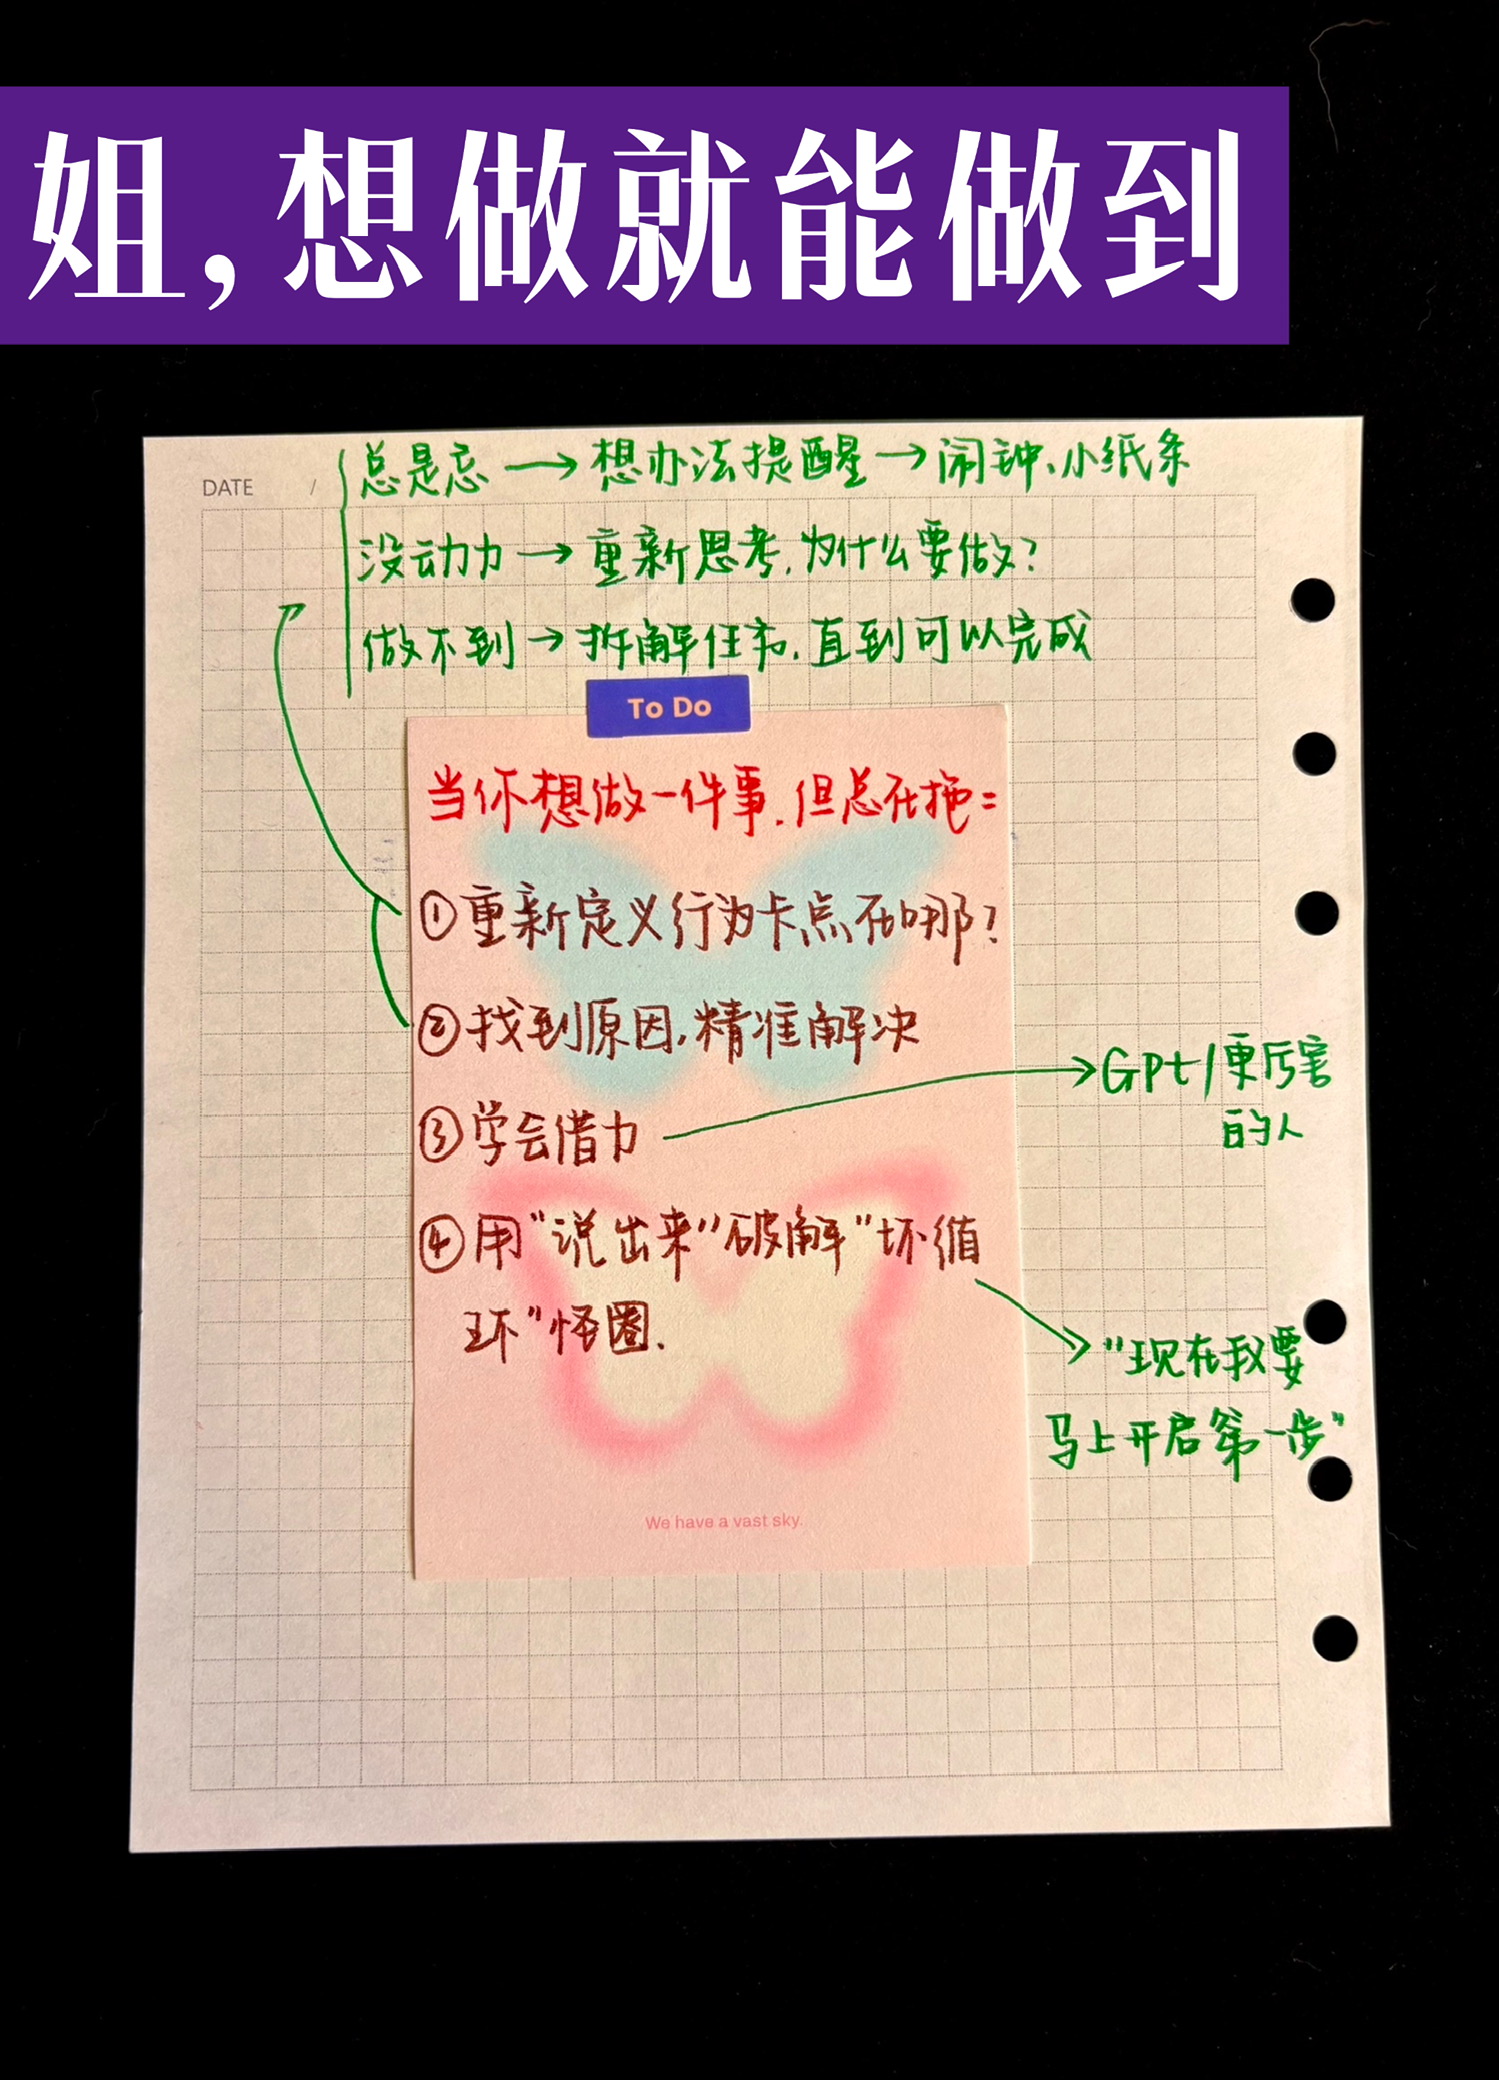 姐,想做就能做到
DATE /
总是忘→想办法提醒→闹钟、小纸条
没动力→重新思考,为什么要做?
做不到→拆解任务,直到可以完成
To Do
当你想做一件事,但总在拖=
①重新定义行为卡点在哪?
②找到原因,精准解决
③学会借力
→Gpt/更厉害
的人
④用"说出来"破解"坏循
环"怪圈.
→"现在我要
马上开启第一步"
We have a vast sky.